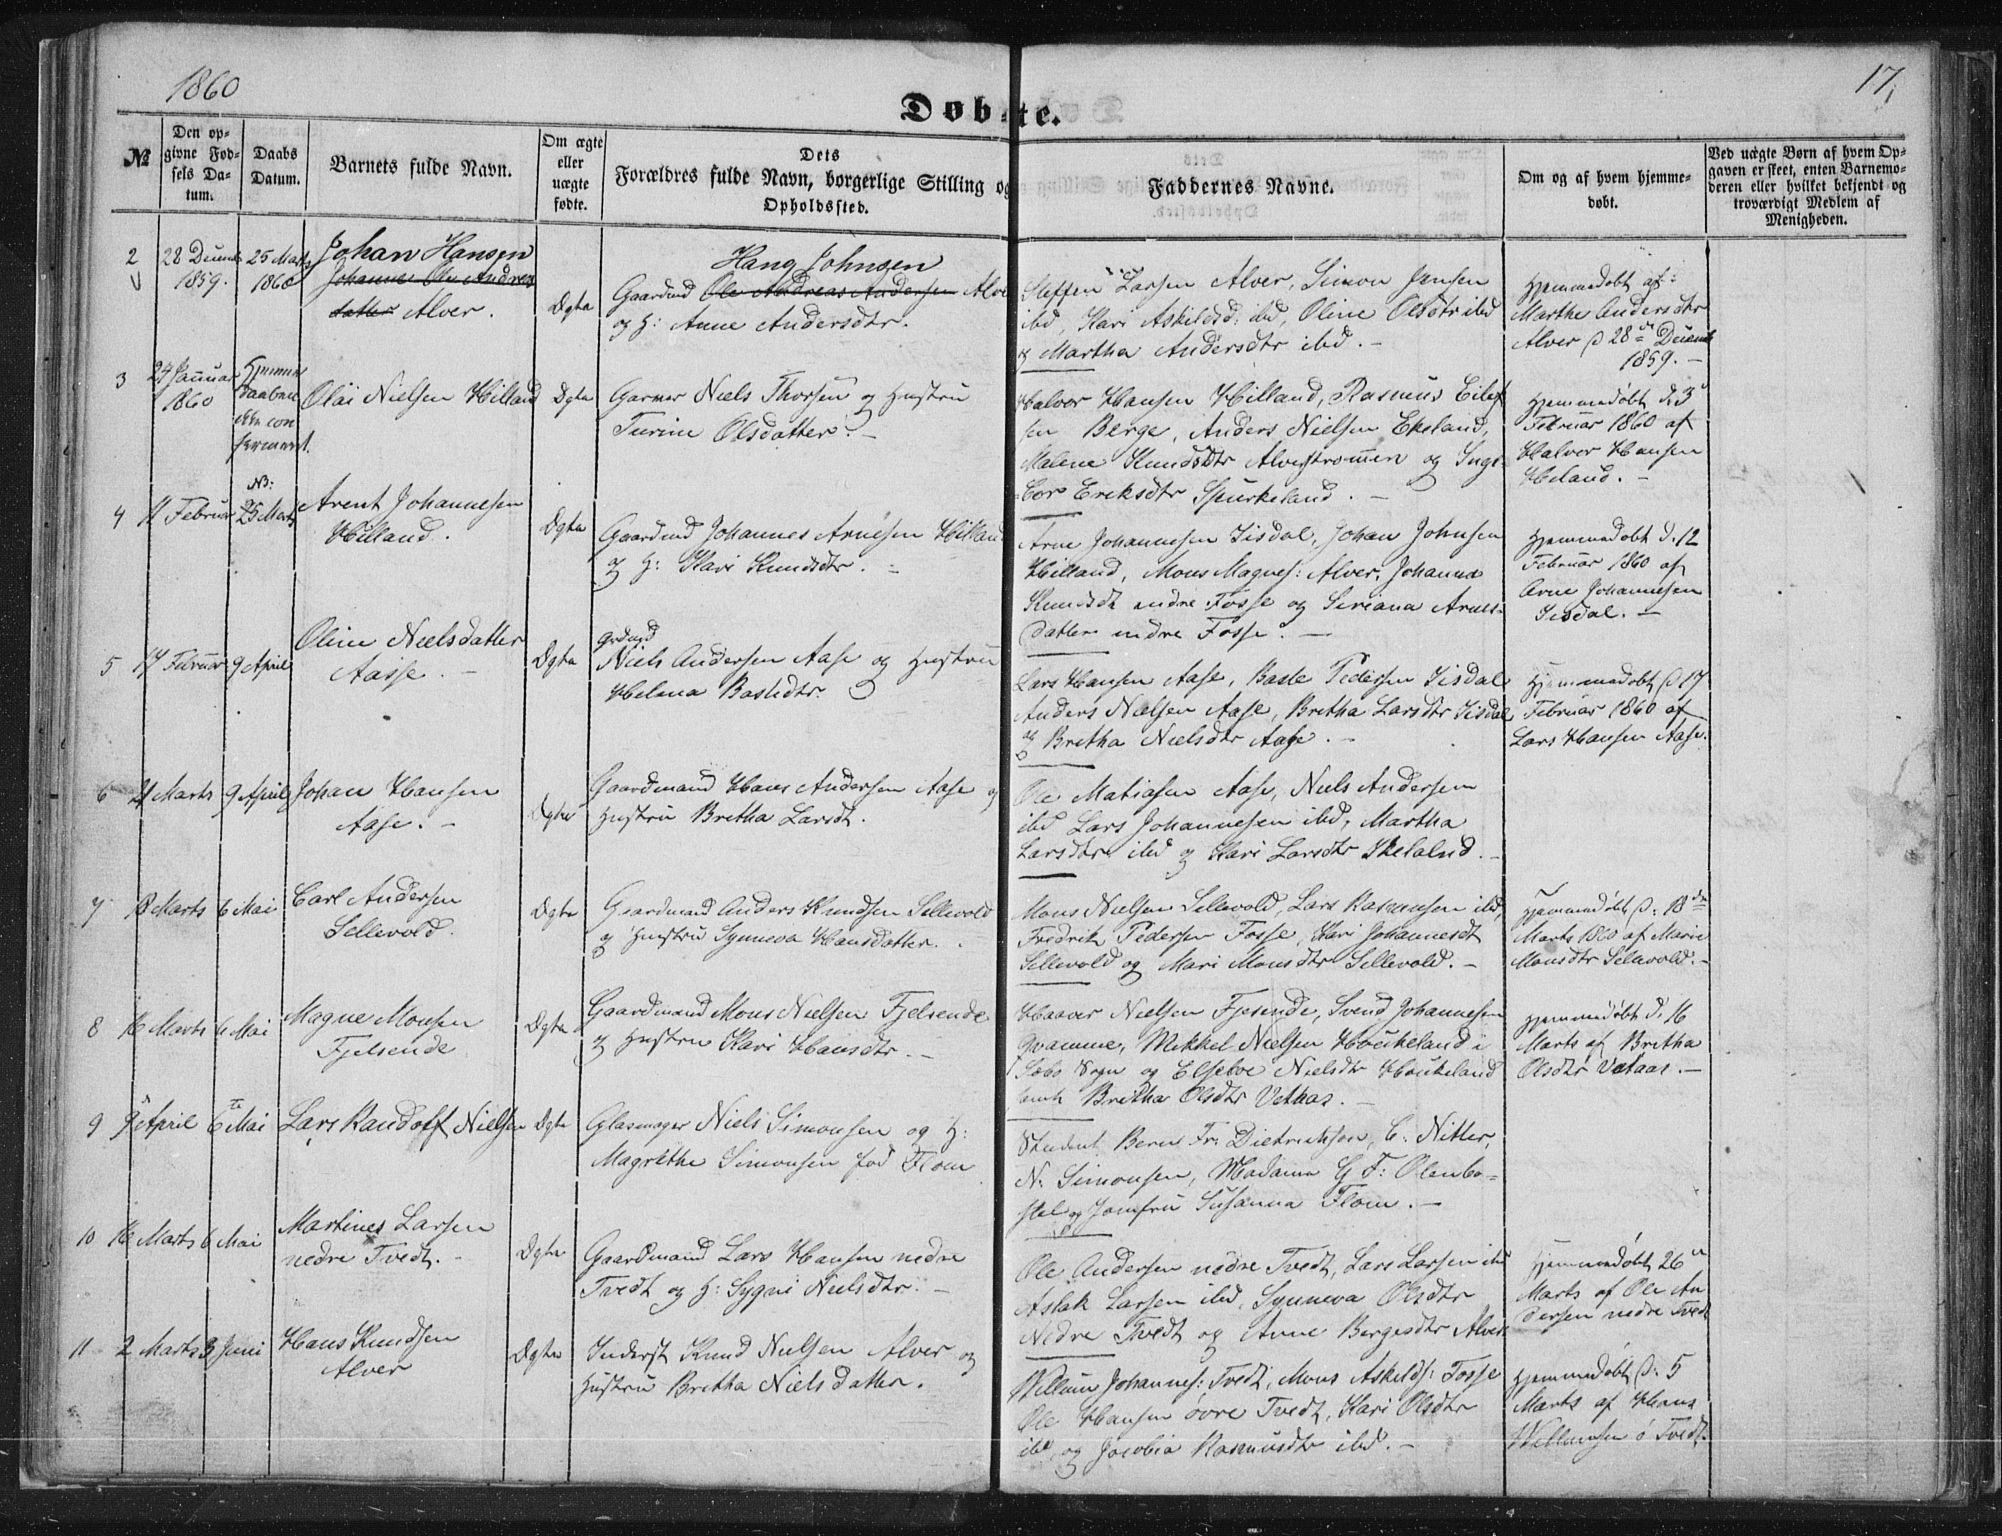 1860
17,
Døbte.
№
Den op-
givne Fød-
sels Da-
tum.
Daabs
Datum.
Barnets fulde Navn.
Om ægte
eller
uægte
fødte.
Dets
Forældres fulde Navn, borgerlige Stilling og
Opholdssted.
Faddernes Navne.
Om og af hvem hjemme-
døbt.
Ved uægte Børn af hvem Op-
gaven er skeet, enten Barnemo-
deren eller hvilket bekjendt og
troværdigt Medlem af
Menigheden.
2
28 Decemb
1859.
25 Marts
1860
Johan Hansen
Johanne Ole Andreas
datter Alver.
Ægte
Hans Johnsen
Gaardmd Ole Andreas Andersen Alver
og H: Anne Andersdtr.
Steffen Larsen Alver, Simon Jensen
ibd, Kari Askildsd: ibd, Oline Olsdtr ibd
og Martha Andersdtr ibd. –
Hjemmedøbt af:
Marthe Andersdtr
Alver d 28de Decemb
1859. –
3
29 Januar
1860
Hjemme
daaben
ikke con
fermeret.
Olai Nielsen Hilland
Ægte
Garver Niels Thorsen og Hustru
Turine Olsdatter. –
Halvor Hansen Hilland, Rasmus Eilef
sen Berge, Anders Nielsen Ekeland,
Malene Knudsdtr Alverstrømmen og Inge-
bor Eriksdtr Spurkeland. –
Hjemmedøbt d. 3
Februar 1860 af
Halvor Hansen
Hiland. –
4
11 Februar
NB:
25 Marts
Arent Johannesen
Hilland.
Ægte
Gaardmd Johannes Arnesen Hilland
og H: Kari Knudsdtr. –
Arne Johannesen Iisdal, Johan Johnsen
Hilland, Mons Magnes: Alver, Johanna
Knudsdt nedre Fosse og Seriana Arnes-
datter nedre Fosse. –
Hjemmedøbt d. 12
Februar 1860 af
Arne Johannesen
Iisdal. –
5
17 Februar
9 April
Oline Nielsdatter
Aasse. –
Ægte
Grdmd
Niels Andersen Aase og Hustru
Helena Bastsdtr.
Lars Hansen Aase, Baste Pedersen Iisdal
Anders Nielsen Aase, Bretha Larsdtr Iisdal
og Bretha Nielsdtr Aase. –
Hjemmedøbt d 17
Februar 1860 af
Lars Hansen Aase.
6
21 Marts
9 April
Johan Hansen
Aase. –
Ægte
Gaardmand Hans Andersen Aase og
Hustru Bretha Larsdt.
Ole Matiasen Aase, Niels Andersen
ibd Lars Johannesen ibd, Martha
Larsdtr ibd og Kari Larsdtr Ikelalnd. –
7
18 Marts
6 Mai
Carl Andersen
Sellevold.
Ægte
Gaardmand Anders Knudsen Sellevold
og Hustru Synneva Hansdatter.
Mons Nielsen Sellevold, Lars Rasmusen ibd,
Fredrik Pedersen Fosse, Kari Johannesdt
Sellevold og Mari Monsdtr Sellevold. –
Hjemmedøbt d: 18de
Marts 1860 af Marie
Monsdtr Sellevold. –
8
16 Marts
6 Mai
Magne Monsen
Fjelsende
Ægte
Gaardmand Mons Nielsen Fjelsende
og Hustru Kari Hansdtr. –
Haaver Nielsen Fjesende, Svend Johannesen
Qvamme, Mikkel Nielsen Houkeland i
Sæbø Sogn og Elsebe Nielsdtr Houkeland
samt Bretha Olsdtr Vetaas. –
Hjemmedøbt d. 16
Marts af Bretha
Olsdtr Vetaas. –
9
9 April
6te Mai
Lars Randolf Nielsen
Ægte
Glasmager Niels Simonsen og H:
Magrethe Simonsen fød Flom
Student Bern Fr: Dietrichson, C. Nitter,
N. Simonsen, Madame G F: Olenbo-
stel og Jomfru Susanna Flom. –
10
16 Marts
6 Mai
Martines Larsen
nedre Tvedt. –
Ægte
Gaardmand Lars Hansen nedre
Tvedt og H: Sygni Nielsdtr. –
Ole Andersen nedre Tvedt, Lars Larsen ibd
Aslak Larsen ibd, Synneva Olsdtr
Nedre Tvedt og Anne Bergesdtr Alver.
Hjemmedøbt 26de
Marts af Ole An
dersen nedre Tvedt
11
2 Marts
3 Juni
Hans Knudsen
Alver
Ægte
Inderst Knud Nielsen Alver og
Hustru Bretha Nielsdatter.
Willum Johannes: Tvedt, Mons Askilds: Fosse
Ole Hansen øvre Tvedt, Kari Olsdtr
ibd, og Jacobia Rasmusdtr ibd. –
Hjemmedøbt d: 5
Marts af Hans
Willumsen ø Tvedt.